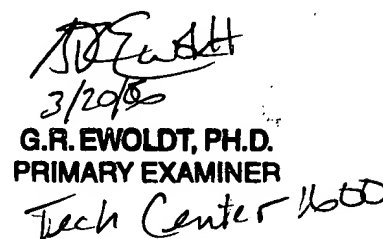 GR Ewoldt
3/20/06
G.R. EWOLDT, PH.D.
PRIMARY EXAMINER
Tech Center 1600